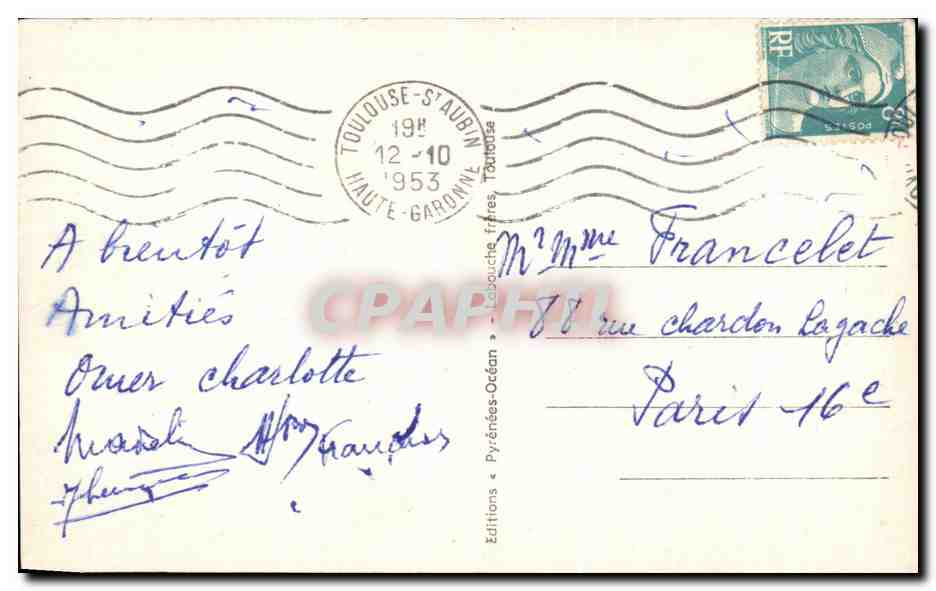 TOULOUSE-ST AUBIN
19H
12-10
1953
HAUTE-GARONNE
RF
POSTES
A bientôt
Amitiés
Omer charlotte
Mr Mme Francelet
88 rue chardon Lagache
Paris 16e
Editions « Pyrénées-Océan » - Labouche frères, Toulouse
CPAPHIL